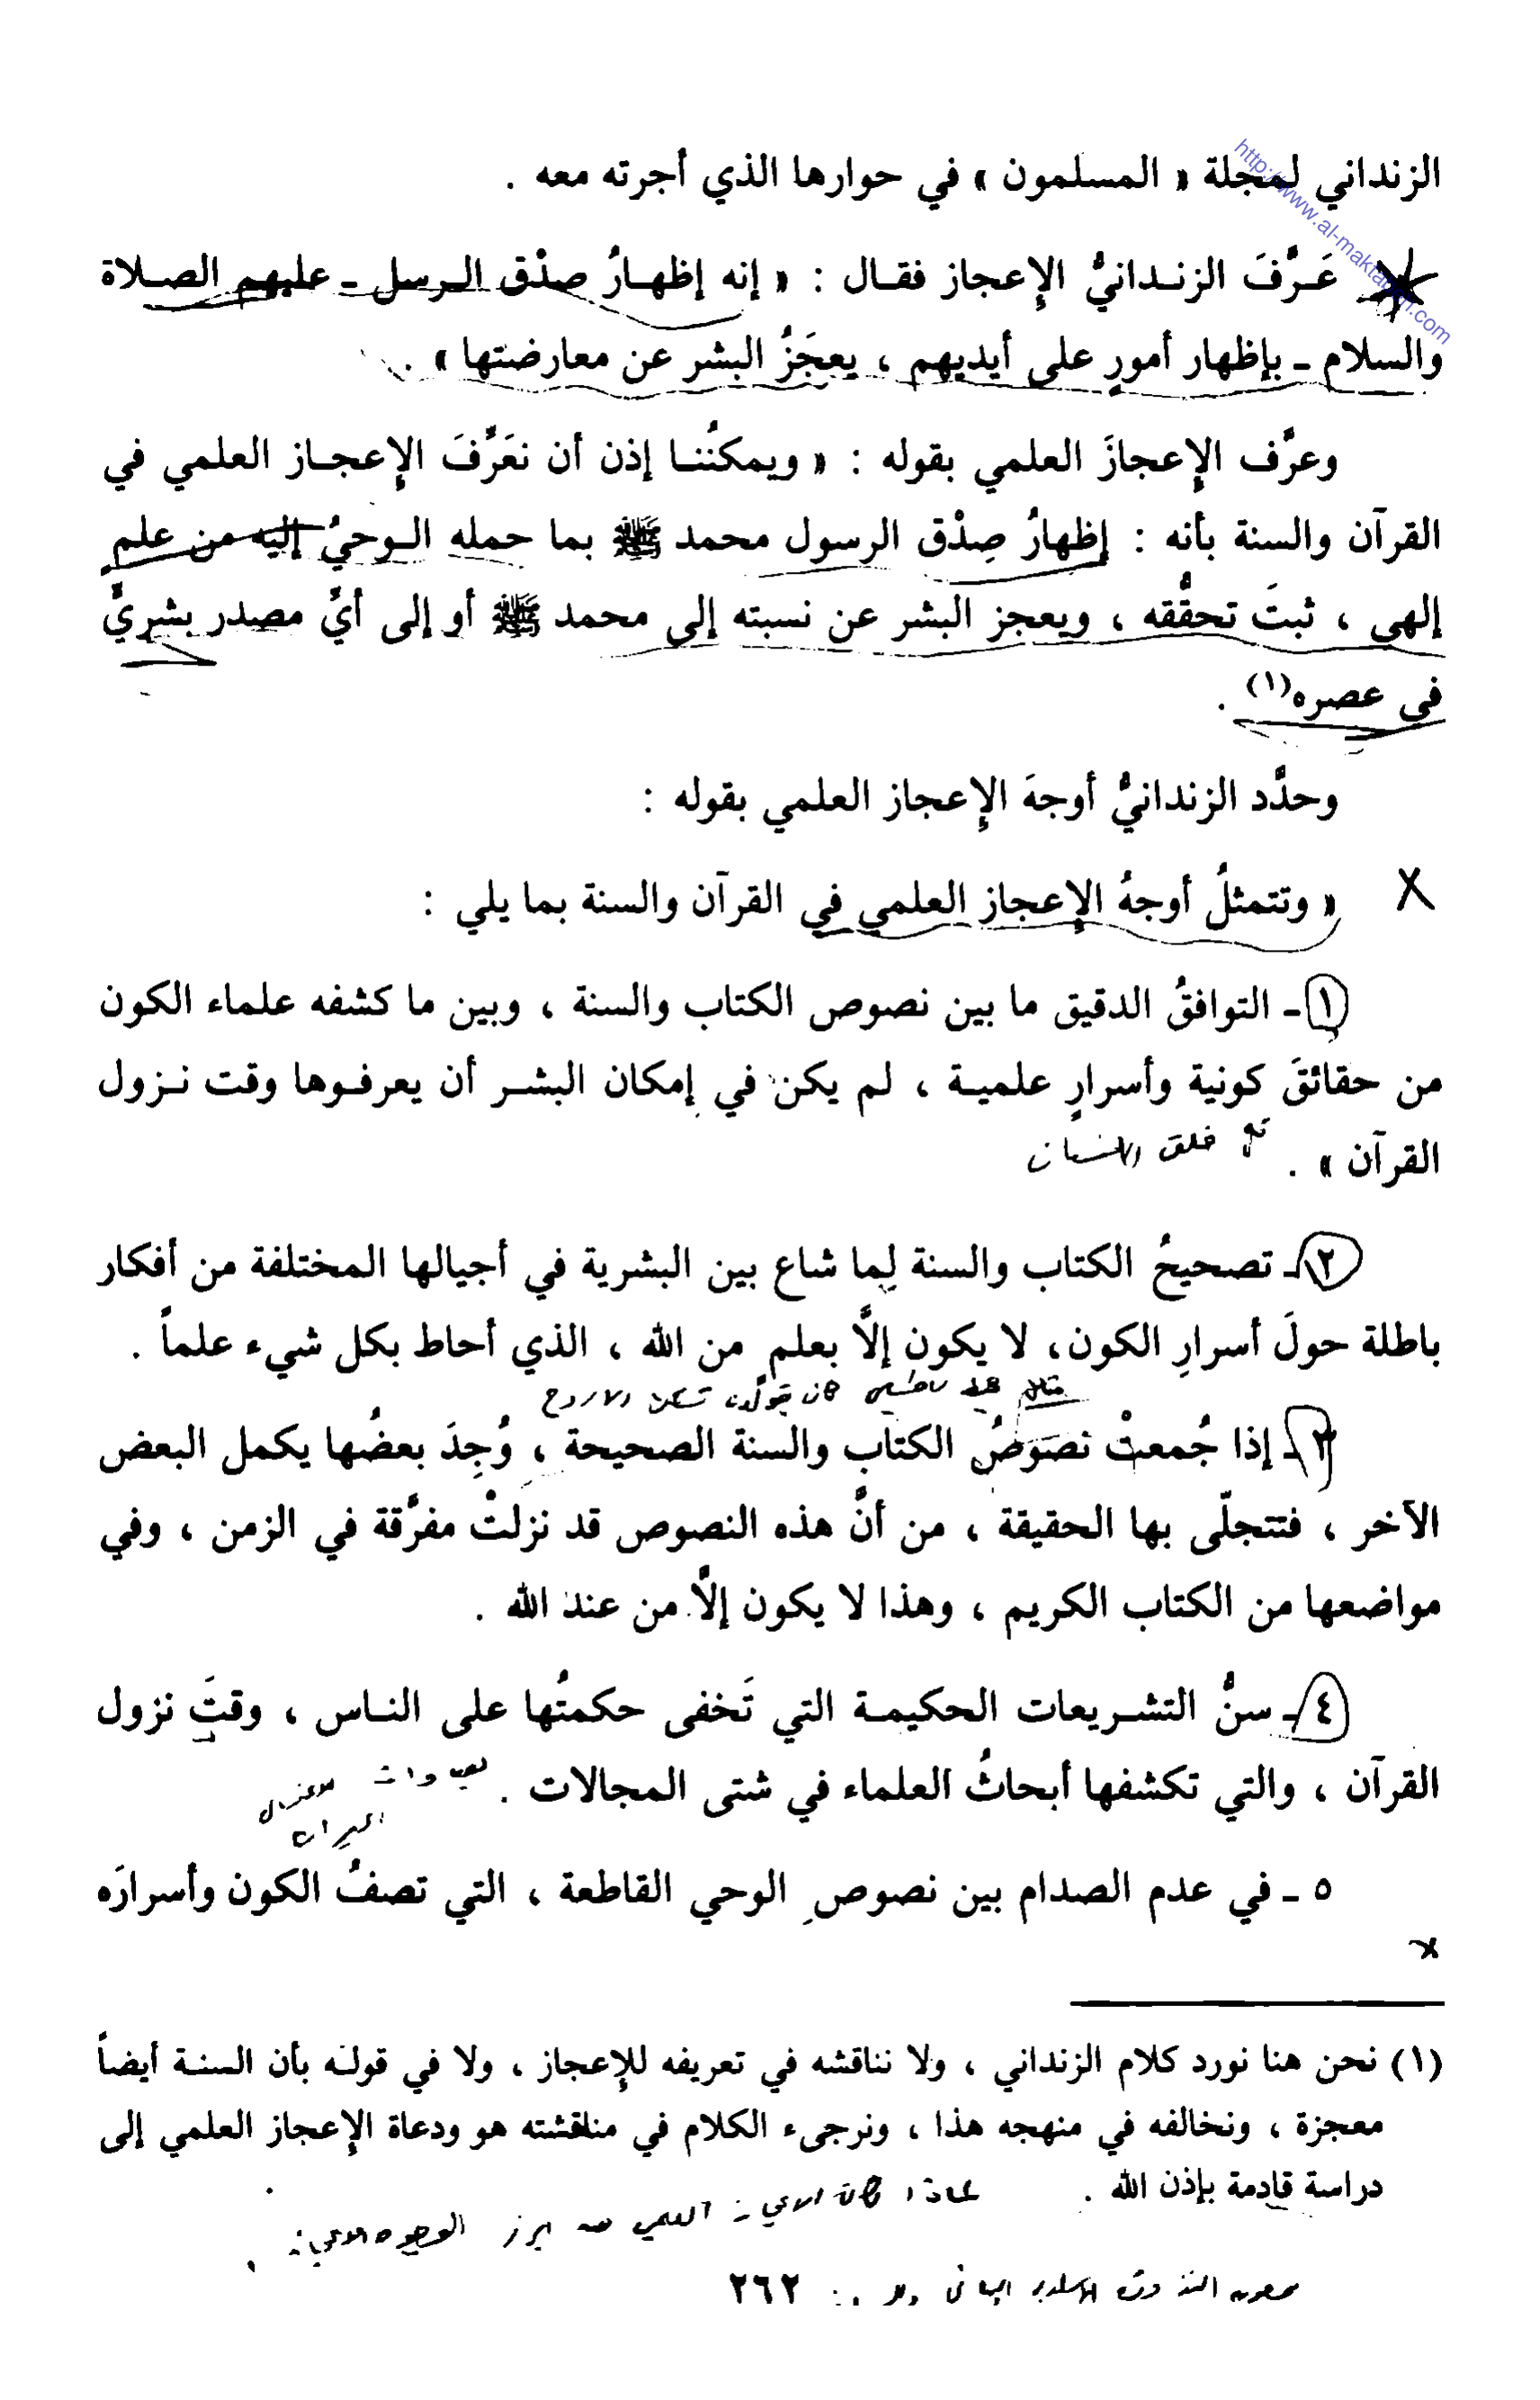 http://www.al-maktabeh.com
الزنداني لمجلة « المسلمون » في حوارها الذي أجرته معه .
عَرَّفَ الزندانيُّ الإعجاز فقال : « إنه إظهارُ صدْق الرسل ـ عليهم الصلاة
والسلام ـ بإظهار أمورٍ على أيديهم ، يعجَزُ البشر عن معارضتها » .
وعرَّف الإعجازَ العلمي بقوله : « ويمكنُنا إذن أن نعَرِّفَ الإعجاز العلمي في
القرآن والسنة بأنه : إظهارُ صِدْق الرسول محمد ﷺ بما حمله الوحيُ إليه من علم
إلهي ، ثبتَ تحقُّقه ، ويعجز البشر عن نسبته إلى محمد ﷺ أو إلى أيِّ مصدر بشريٍّ
في عصره(١) .
وحدَّد الزندانيُّ أوجهَ الإعجاز العلمي بقوله :
« وتتمثلُ أوجهُ الإعجاز العلمي في القرآن والسنة بما يلي :
١ ـ التوافقُ الدقيق ما بين نصوص الكتاب والسنة ، وبين ما كشفه علماء الكون
من حقائقَ كونية وأسرارٍ علمية ، لم يكن في إمكان البشر أن يعرفوها وقت نزول
القرآن » . خلق الانسان
٢ ـ تصحيحُ الكتاب والسنة لِما شاع بين البشرية في أجيالها المختلفة من أفكار
باطلة حولَ أسرارِ الكون، لا يكون إلَّا بعلمٍ من الله ، الذي أحاط بكل شيء علماً .
٣ ـ إذا جُمعتْ نصوصُ الكتاب والسنة الصحيحة ، وُجِدَ بعضُها يكمل البعض
الآخر ، فتتجلّى بها الحقيقة ، من أنَّ هذه النصوص قد نزلتْ مفرَّقة في الزمن ، وفي
مواضعها من الكتاب الكريم ، وهذا لا يكون إلَّا من عند الله .
٤ ـ سنُّ التشريعات الحكيمة التي تَخفى حكمتُها على الناس ، وقتَ نزول
القرآن ، والتي تكشفها أبحاثُ العلماء في شتى المجالات .
٥ ـ في عدم الصدام بين نصوصِ الوحي القاطعة ، التي تصفُ الكون وأسرارَه
(١) نحن هنا نورد كلام الزنداني ، ولا نناقشه في تعريفه للإعجاز ، ولا في قوله بأن السنة أيضاً
معجزة ، ونخالفه في منهجه هذا ، ونرجىء الكلام في مناقشته هو ودعاة الإعجاز العلمي إلى
دراسة قادمة بإذن الله .
٢٦٢